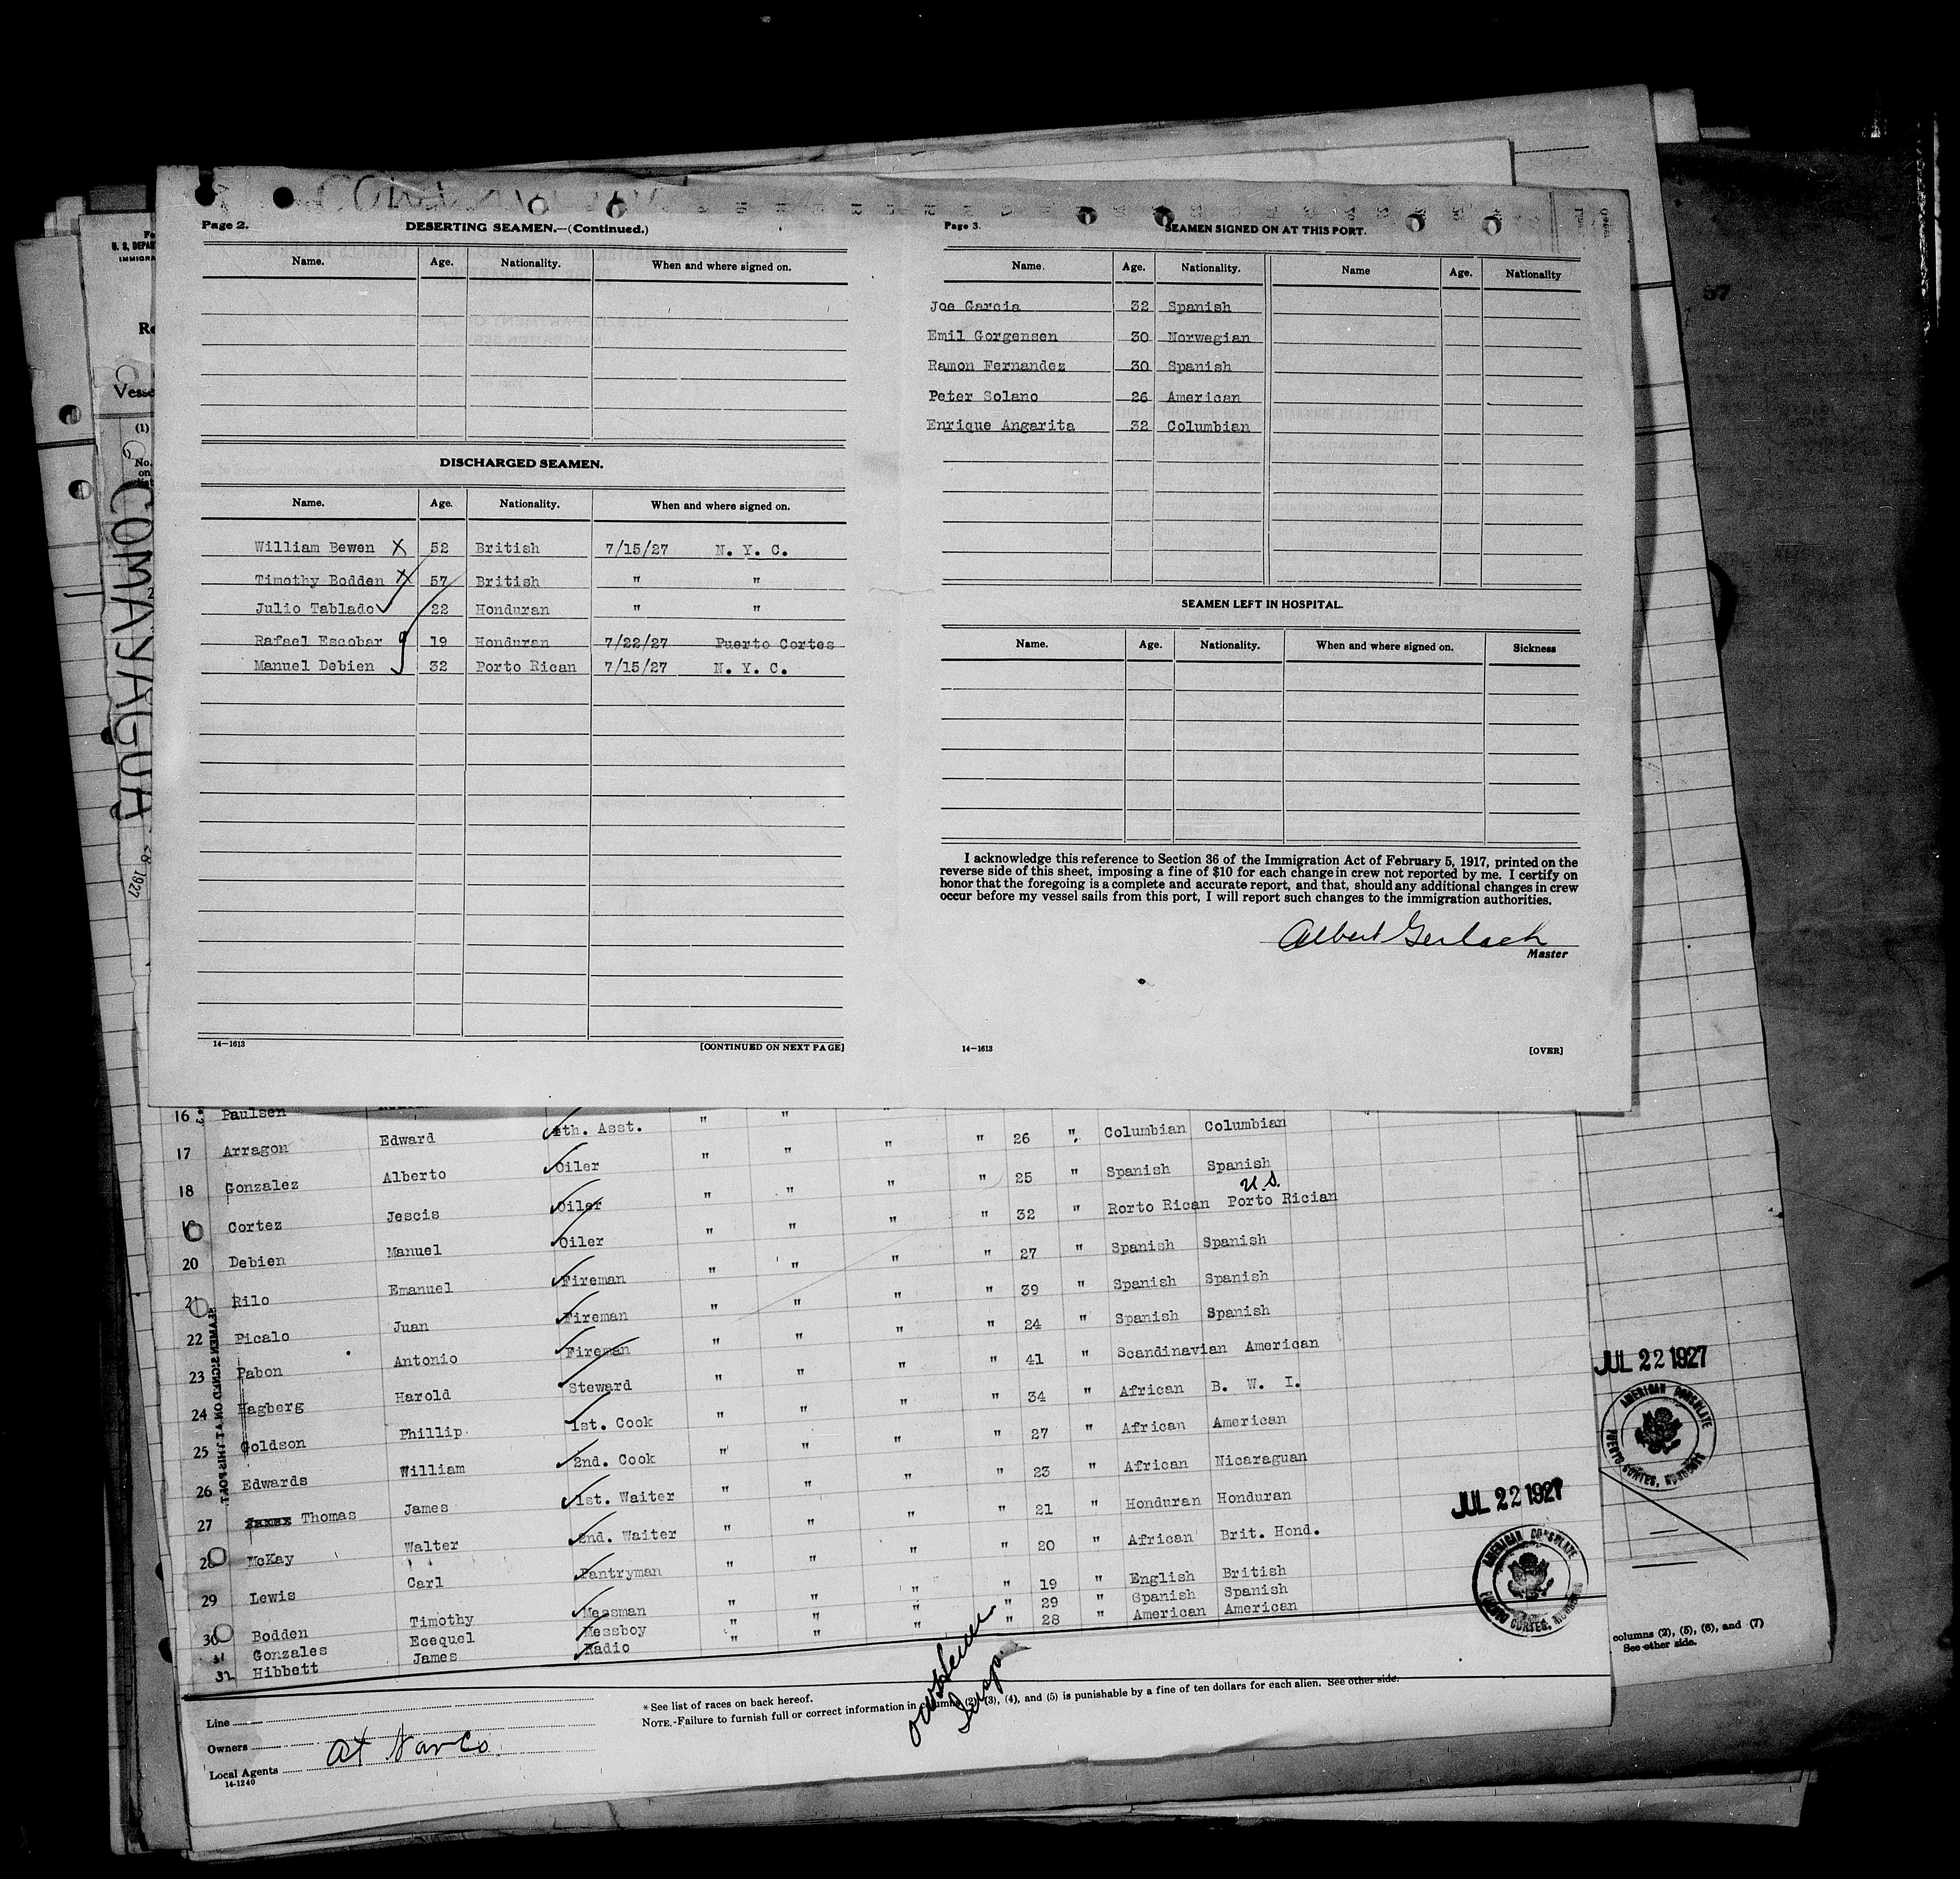 Page 2.
DESERTING SEAMEN.—(Continued.)
Name. Age. Nationality. When and where signed on.
DISCHARGED SEAMEN.
Name. Age. Nationality. When and where signed on.
William Bewen X 52 British 7/15/27 N. Y. C.
Timothy Bodden X 57 British " "
Julio Tablado 22 Honduran " "
Rafael Escobar 19 Honduran 7/22/27 Puerto Cortes
Manuel Debien 32 Porto Rican 7/15/27 N. Y. C.
14—1613 [CONTINUED ON NEXT PAGE]
Page 3.
SEAMEN SIGNED ON AT THIS PORT.
Name. Age. Nationality. Name Age. Nationality
Joe Garcia 32 Spanish
Emil Gorgensen 30 Norwegian
Ramon Fernandez 30 Spanish
Peter Solano 26 American
Enrique Angarita 32 Columbian
SEAMEN LEFT IN HOSPITAL.
Name. Age. Nationality. When and where signed on. Sickness
I acknowledge this reference to Section 36 of the Immigration Act of February 5, 1917, printed on the
reverse side of this sheet, imposing a fine of $10 for each change in crew not reported by me. I certify on
honor that the foregoing is a complete and accurate report, and that, should any additional changes in crew
occur before my vessel sails from this port, I will report such changes to the immigration authorities.
Albert Gerlach
Master
14—1613 [OVER]
U. S. DEPAR
IMMIGRA
Vesse
(1)
No.
on
COMAYAGUA
1927
16 Paulsen
17 Arragon Edward 4th. Asst. " " " " 26 " Columbian Columbian
18 Gonzalez Alberto Oiler " " " " 25 " Spanish Spanish
U.S.
19 Cortez Jescis Oiler " " " " 32 " Rorto Rican Porto Rician
20 Debien Manuel Oiler " " " " 27 " Spanish Spanish
21 Rilo Emanuel Fireman " " " " 39 " Spanish Spanish
22 Picalo Juan Fireman " " " " 24 " Spanish Spanish
23 Pabon Antonio Fireman " " " " 41 " Scandinavian American
24 Hagberg Harold Steward " " " " 34 " African B. W. I.
25 Goldson Phillip 1st. Cook " " " " 27 " African American
26 Edwards William 2nd. Cook " " " " 23 " African Nicaraguan
27 Thomas James 1st. Waiter " " " " 21 " Honduran Honduran
28 McKay Walter 2nd. Waiter " " " " 20 " African Brit. Hond.
29 Lewis Carl Pantryman " " " " 19 " English British
30 Bodden Timothy Messman " " " " 29 " Spanish Spanish
31 Gonzales Ecequel Messboy " " " " 28 " American American
32 Hibbett James Radio " " "
SEAMEN SIGNED ON AT THIS PORT.
JUL 22 1927
AMERICAN CONSULATE
PUERTO CORTES, HONDURAS
JUL 22 1927
AMERICAN CONSULATE
PUERTO CORTES, HONDURAS
columns (2), (5), (6), and (7)
See other side.
Line
Owners
Local Agents
14-1240
* See list of races on back hereof.
NOTE.-Failure to furnish full or correct information in columns (2), (3), (4), and (5) is punishable by a fine of ten dollars for each alien. See other side.
Insp